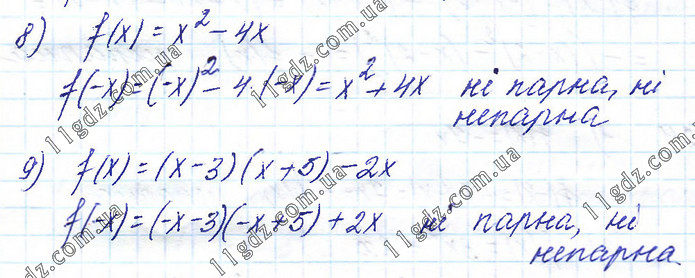 8) f(x) = x² - 4x
f(-x) = (-x)² - 4·(-x) = x² + 4x ні парна, ні
непарна
9) f(x) = (x-3)(x+5) - 2x
f(-x) = (-x-3)(-x+5) + 2x ні парна, ні
непарна
11gdz.com.ua
11gdz.com.ua
11gdz.com.ua
11gdz.com.ua
11gdz.com.ua
11gdz.com.ua